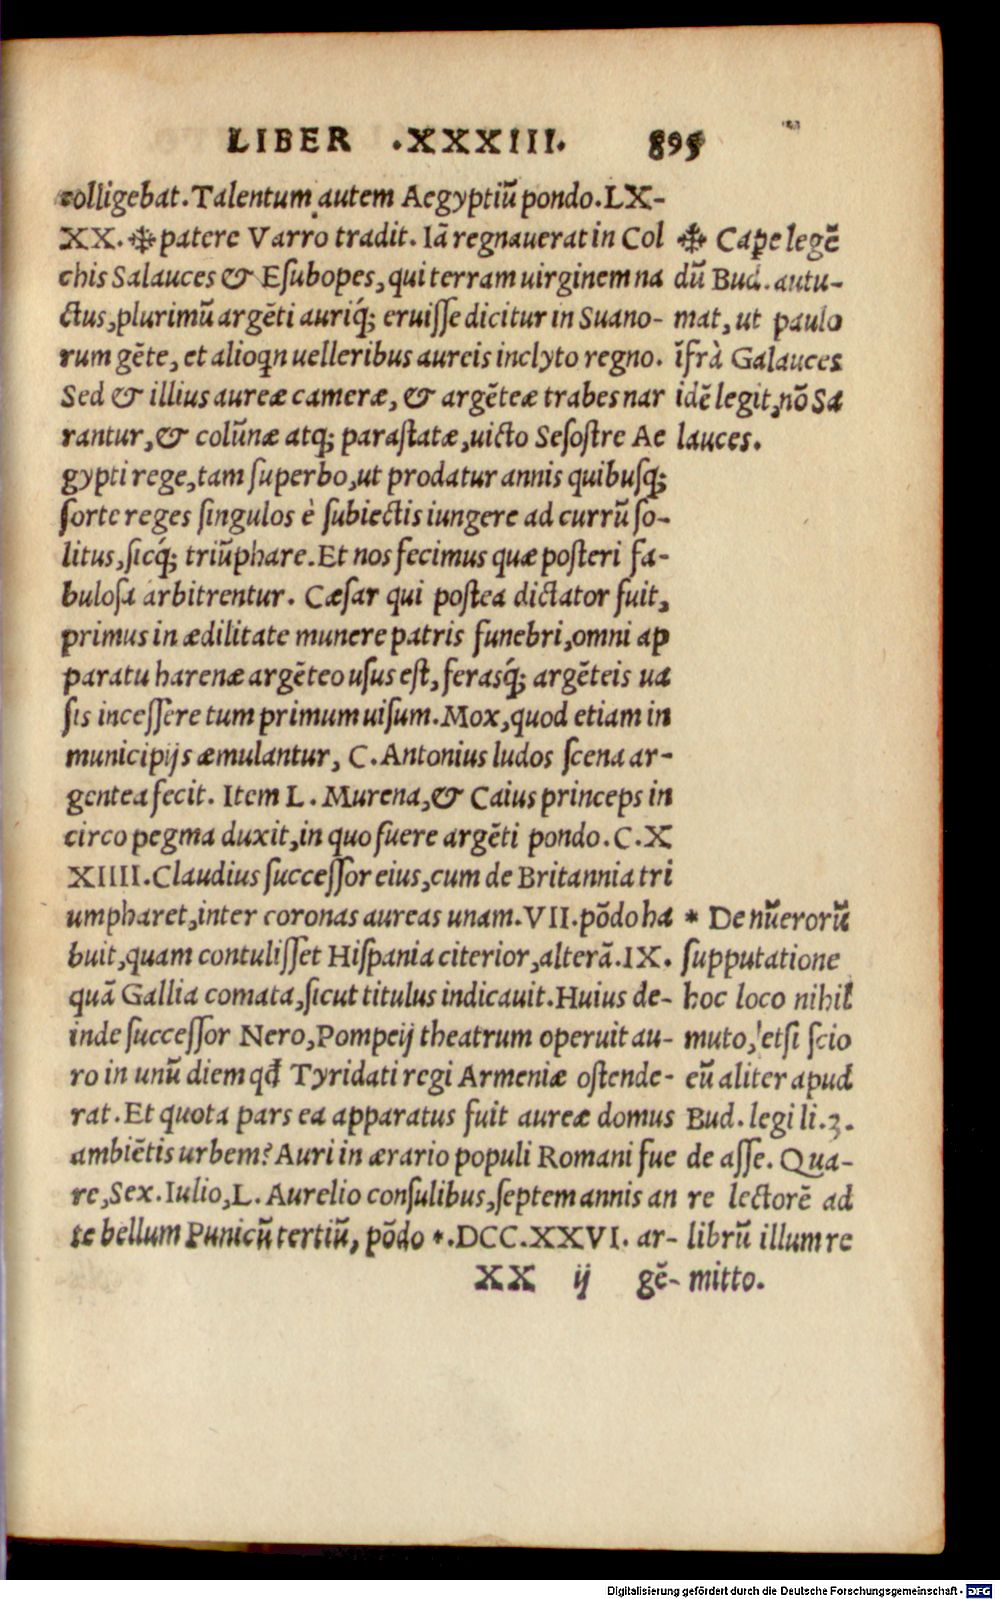 LIBER .XXXIII. 895
colligebat. Talentum autem Aegyptiũ pondo. LX-
XX. ❉ patere Varro tradit. Iã regnauerat in Col
chis Salauces & Esubopes, qui terram uirginem na
ctus, plurimũ argẽti auriq́; eruisse dicitur in Suano-
rum gẽte, et alioqn uelleribus aureis inclyto regno.
Sed & illius aureæ cameræ, & argẽteæ trabes nar
rantur, & colũnæ atq; parastatæ, uicto Sesostre Ae
gypti rege, tam superbo, ut prodatur annis quibusq;
sorte reges singulos è subiectis iungere ad currũ so-
litus, sicq́; triũphare. Et nos fecimus quæ posteri fa-
bulosa arbitrentur. Cæsar qui postea dictator fuit,
primus in ædilitate munere patris funebri, omni ap
paratu harenæ argẽteo usus est, ferasq́; argẽteis ua
sis incessere tum primum uisum. Mox, quod etiam in
municipijs æmulantur, C. Antonius ludos scena ar-
gentea fecit. Item L. Murena, & Caius princeps in
circo pegma duxit, in quo fuere argẽti pondo. C. X
XIIII. Claudius successor eius, cum de Britannia tri
umpharet, inter coronas aureas unam. VII. põdo ha
buit, quam contulisset Hispania citerior, alterã. IX.
quã Gallia comata, sicut titulus indicauit. Huius de-
inde successor Nero, Pompeij theatrum operuit au-
ro in unũ diem qđ Tyridati regi Armeniæ ostende-
rat. Et quota pars ea apparatus fuit aureæ domus
ambiẽtis urbem? Auri in ærario populi Romani fue
re, Sex. Iulio, L. Aurelio consulibus, septem annis an
te bellum Punicũ tertiũ, põdo *. DCC. XXVI. ar-
XX ij gẽ-
❉ Cape legẽ
dũ Bud. autu-
mat, ut paulo
ĩfrà Galauces
idẽ legit, nõ Sa
lauces.
* De nũerorũ
supputatione
hoc loco nihil
muto, etsi scio
eũ aliter apud
Bud. legi li. 3.
de asse. Qua-
re lectorẽ ad
librũ illum re
mitto.
Digitalisierung gefördert durch die Deutsche Forschungsgemeinschaft - DFG